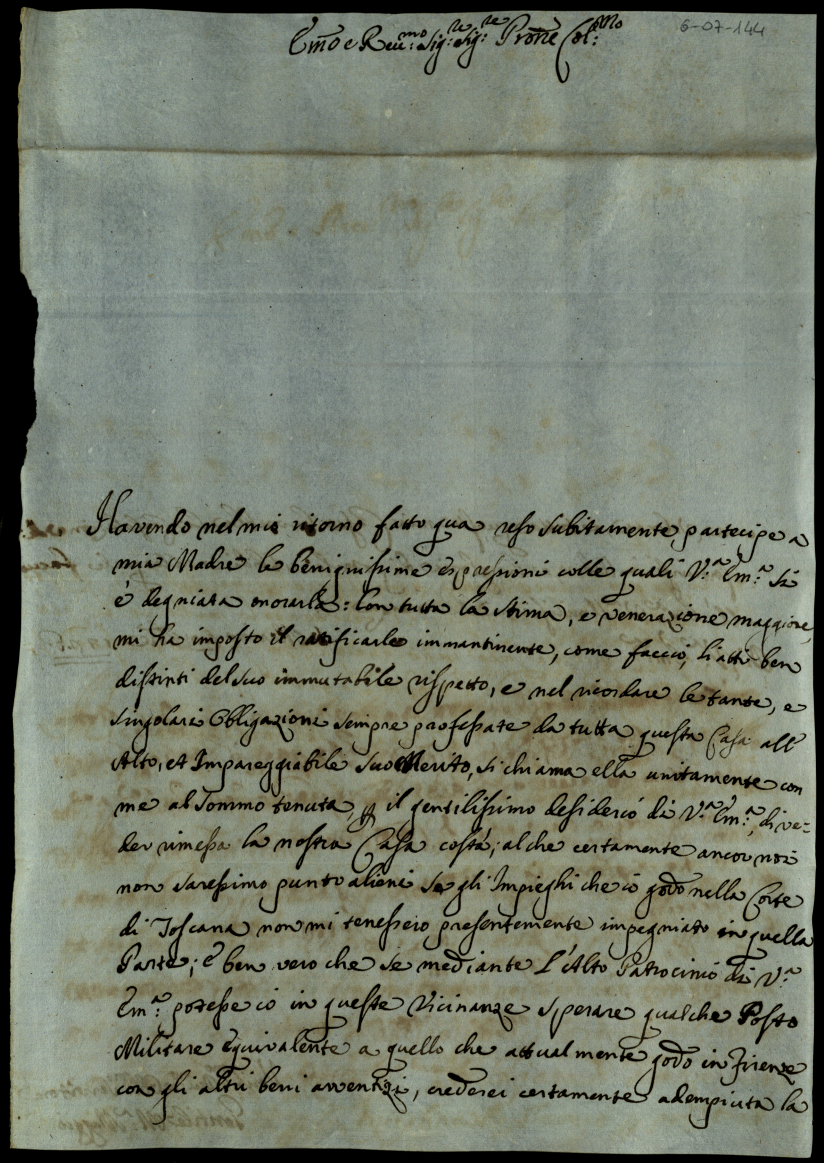 6-07-144
Em̃o e Reu:mo Sig:re Sig:re Prõne Col:mo
Havendo nel mio ritorno fatto qua reso subitamente partecipe a
mia Madre le benignissime espressioni colle quali V.a Em.a si
è degniata onorarla: Con tutta la stima, e venerazione maggiore,
mi ha imposto il ratificarle immantinente, come faccio, li atti ben
distinti del suo immutabile rispetto, e nel ricordare le tante, e
singolari Obligazioni sempre professate da tutta questa Casa all'
Alto, et Impareggiabile suo Merito, si chiama ella unitamente con
me al sommo tenuta, il gentilissimo desiderio di V.a Em.a, di ve=
der rimessa la nostra Casa costà; al che certamente ancor noi
non saressimo punto alieni se gli Impieghi che io godo nella Corte
di Toscana non mi tenessero presentemente impegniato in quella
Parte; È ben vero che se mediante l'Alto Patrocinio di V.a
Em.a potesse io in queste Vicinanze sperare qualche Posto
Militare equivalente a quello che attualmente godo in Firenze
con gli altri beni avventizi, crederei certamente adempiuta la